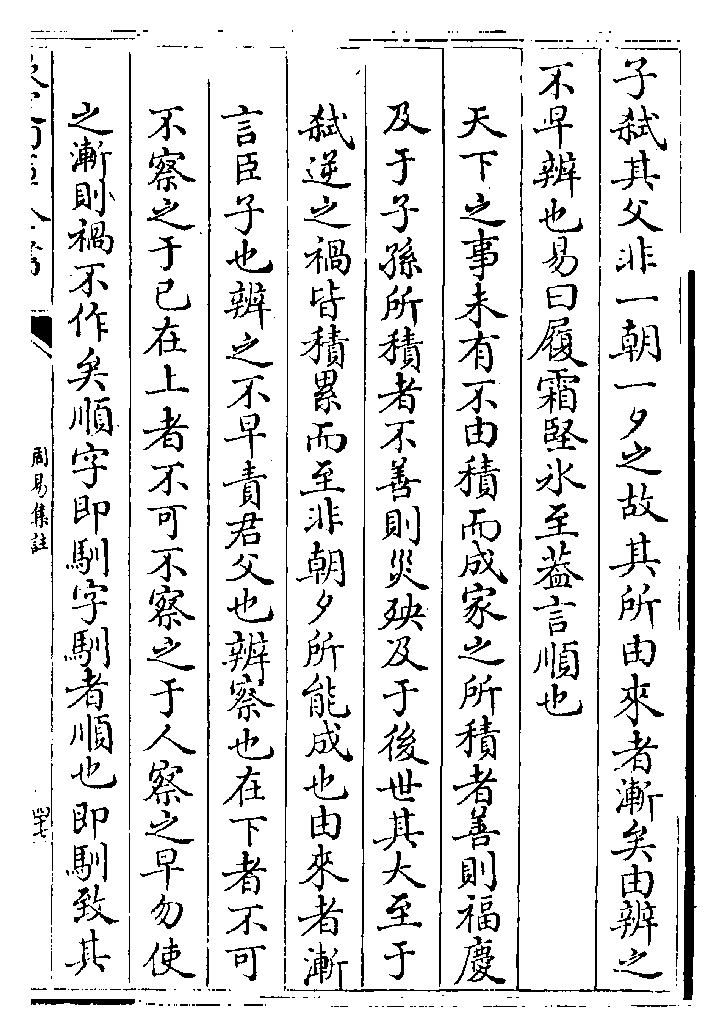 子弑其父非一朝一夕之故其所由來者漸矣由辨之
不早辨也易曰履霜堅氷至葢言順也
天下之事未有不由積而成家之所積者善則福慶
及于子孫所積者不善則災殃及于後世其大至于
弑逆之禍皆積累而至非朝夕所能成也由來者漸
言臣子也辨之不早責君父也辨察也在下者不可
不察之于已在上者不可不察之于人察之早勿使
之漸則禍不作矣順字即馴字馴者順也即馴致其
周易集註